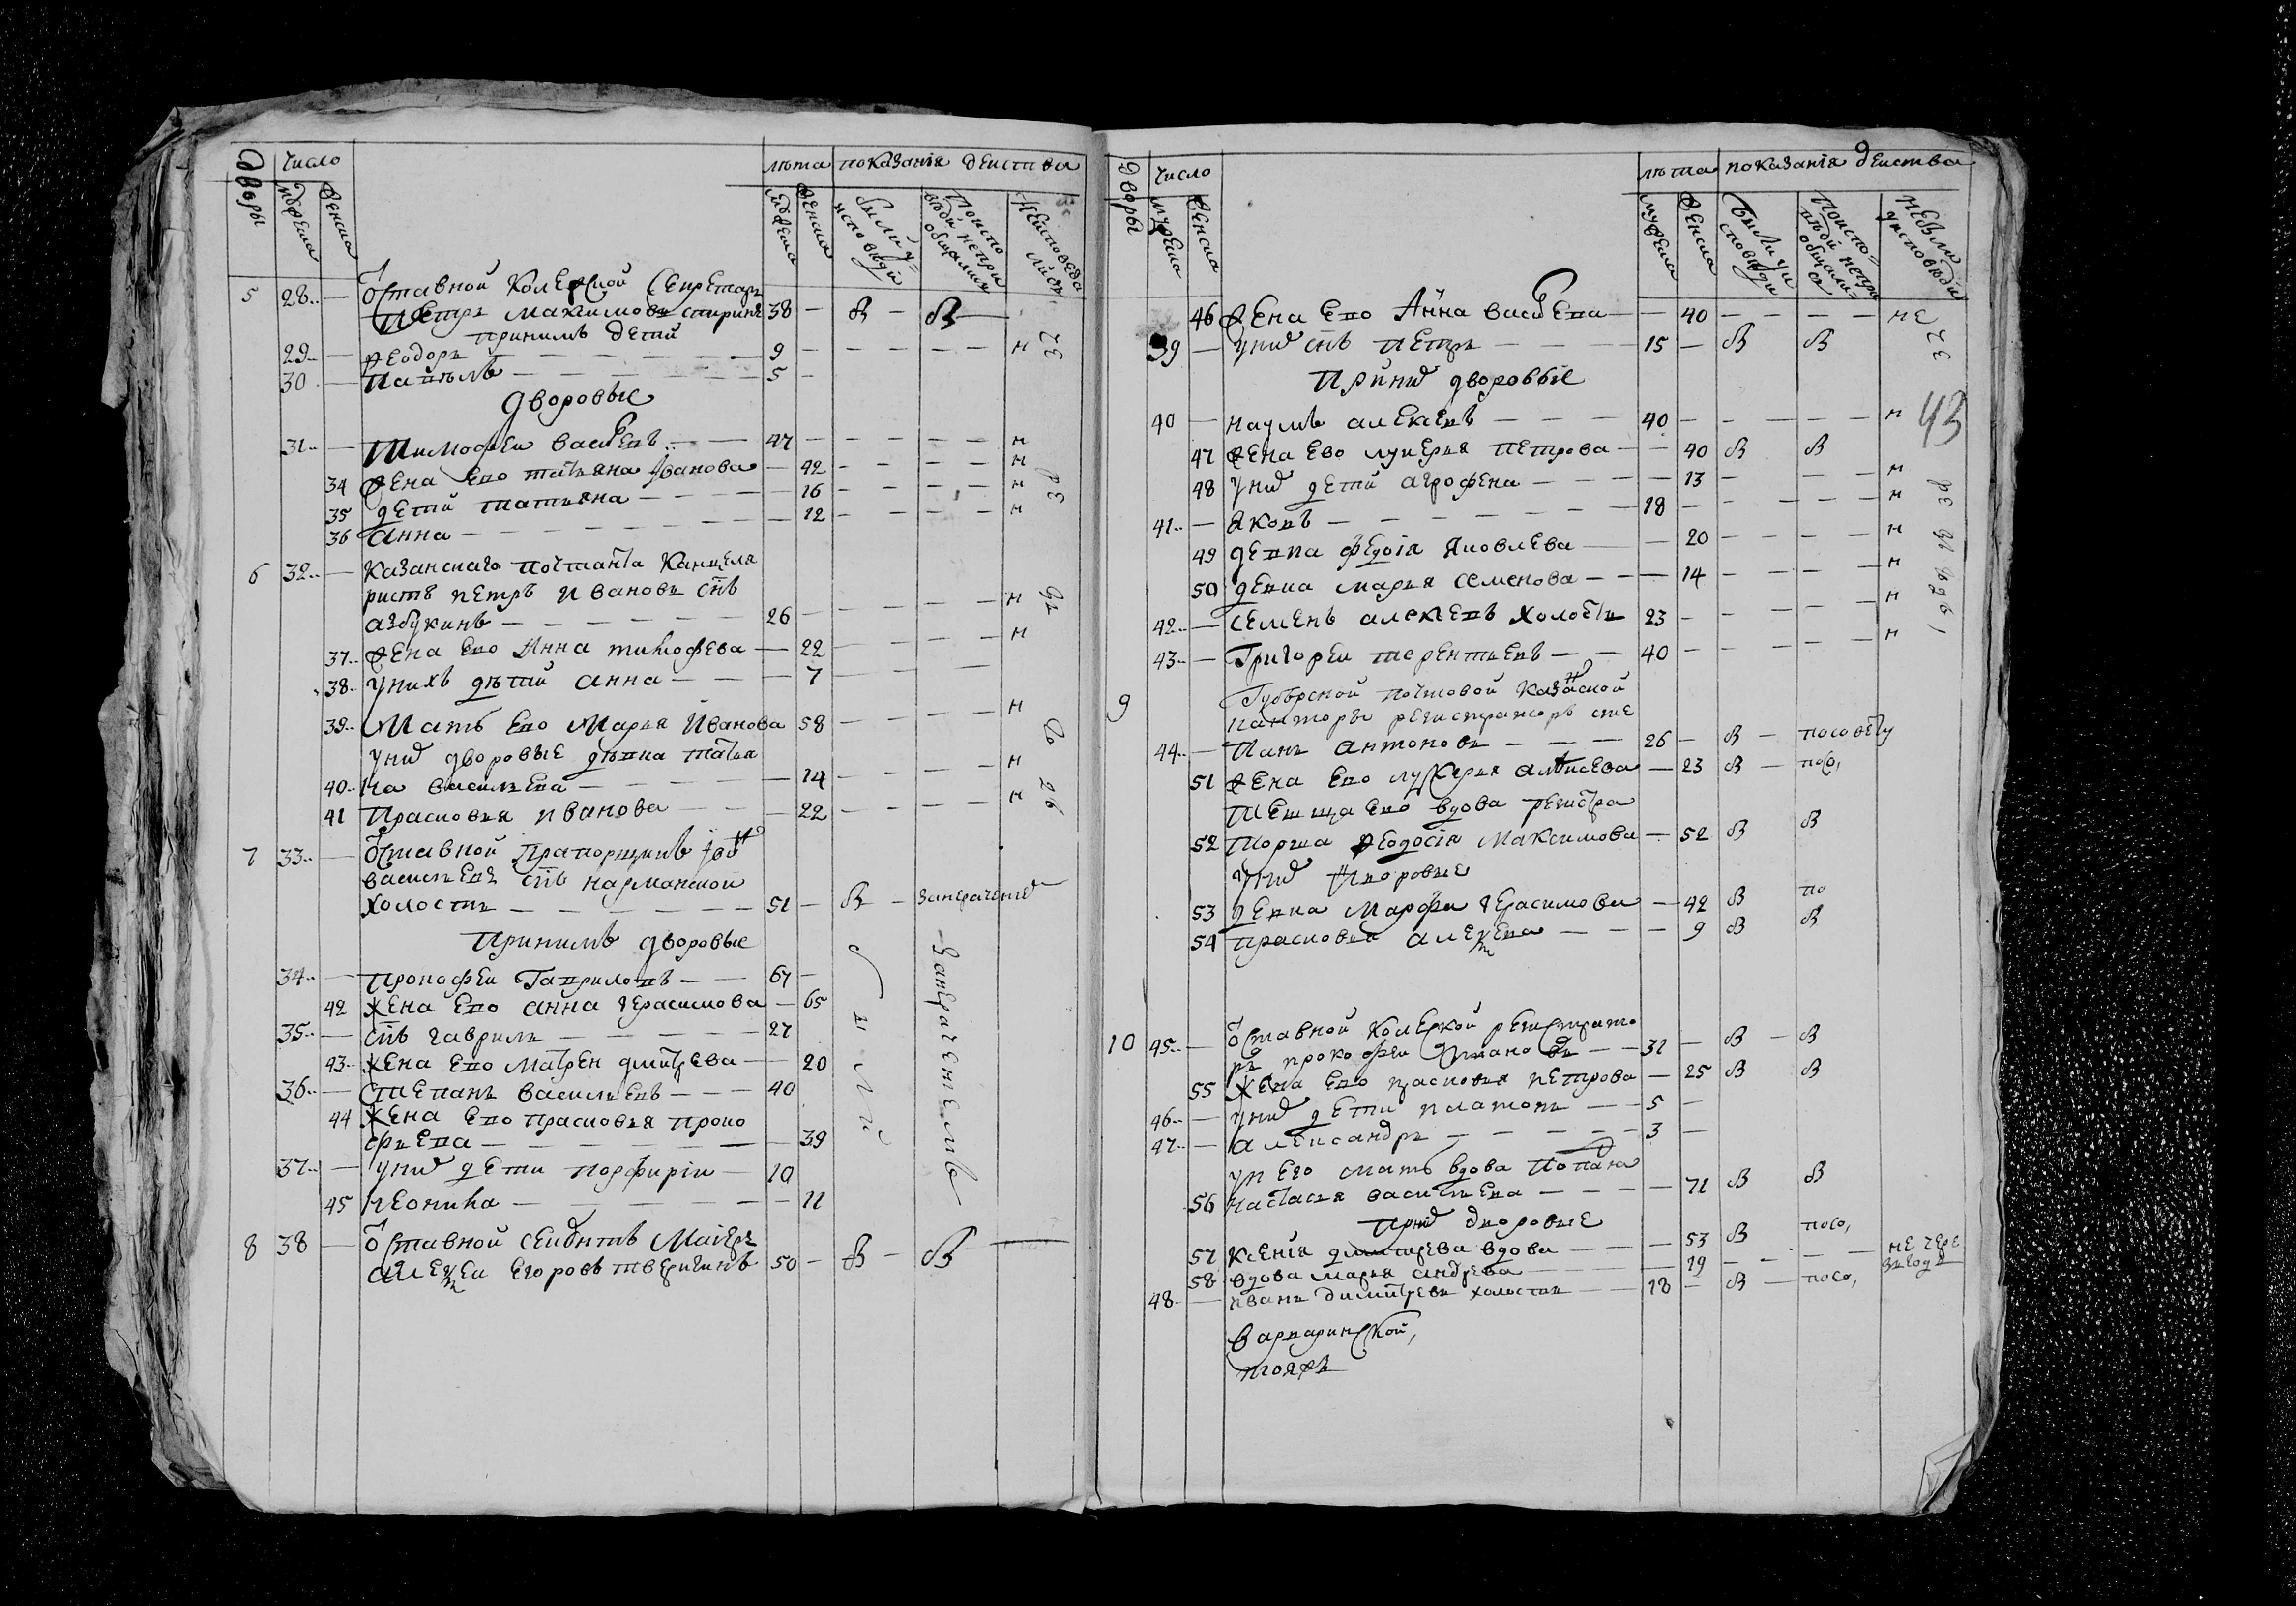 дворы число лѣта показанія действа
мужеска женска мужеска женска были у исповѣди
5 28 отставной колежской секретарь
Петръ Максимовъ 38 — в — в —
при нимъ дети
29 — Феодоръ — 9 — н
30 — Павелъ — 5 —
дворовые
31 — Тимофеи васильевъ — 47 — н
34 жена ево татьяна Иванова — 42 — н
35 дети татьяна — 16 — н
36 Анна — 12 — н
6 32 — Казанскаго почтамта канцеля
ристъ петръ Ивановъ снъ
азбукинъ — 26 — н
37 жена ево Анна тимофева — 22 — н
38 у нихъ дѣтй анна — 7
39 Мать ево Марья Иванова 58 — н
у них дворовые дѣвка татья
40 на васильева — 14 — н
41 Прасковья иванова — 22 — н
7 33 — отставной Прапорщикъ
васильевъ снъ нарманской
холостъ — 51 — в —
при нимъ дворовые
34 — Прокофеи Гавриловъ — 67 —
42 жена ево анна герасимова — 65
35 — снъ гаврилъ — 27
43 жена ево матрен дмитрева — 20
36 — степанъ васильевъ — 40
44 жена ево прасковья проко
фьева — 39
37 — у них дети порфиріи — 10
45 неонила — 11
8 38 — отставной секундъ Маіеръ
алексеи егоровъ тверитинъ 50 — в — в
дворы число лѣта показанія действа
мужеска женска мужеска женска были у исповѣди не были у исповѣди
46 жена ево Анна васильева — 40 — не
39 — у них снъ петръ — 15 — в в
При них дворовые
43
40 — наумъ алексеевъ — 40 — н
47 жена ево лукерья петрова — 40 в в
48 у них дети агрофена — 13 — н
41 — яковъ — 18 — н
49 девка федосія яковлева — 20 — н
50 девка марья семенова — 14 — н
42 — семенъ алексеевъ холостъ 23 — н
43 — Григореи терентьевъ — 40 — н
9 Губернской почтовой казанской
канторы регистраторъ сте
44 — панъ антоновъ — 26 — в — по совету
51 жена ево лукерья — 23 в — по со,
теща ево вдова регистра
52 торша феодосія Максимова — 52 в в
у них дворовые
53 девка марфа герасимова — 42 в по
54 прасковья алексеева — 9 в в
10 45 — отставной колежской регистрато
ръ прокофеи — 31 — в — в
55 жена ево прасковья петрова — 25 в в
46 — у них дети платонъ — 5 —
47 — александръ — 3 —
у него мать вдова
56 настасья васильева — 71 в в
при них дворовые
57 ксенія дмитрева вдова — 53 в по со,
58 вдова марья андрева — 19 —
48 — иванъ димитревъ холостъ — 18 — в — по со,
варваринской,